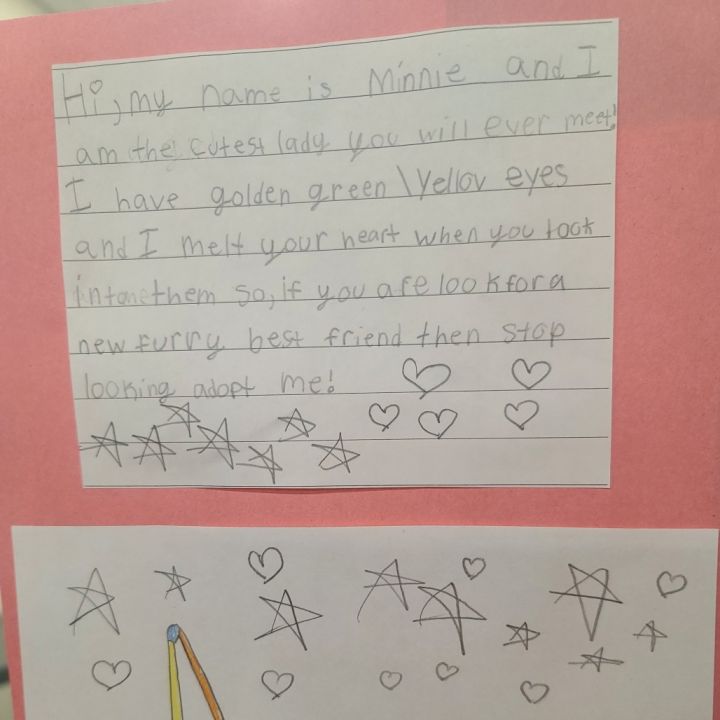 Hi, my name is Minnie and I
am the cutest lady you will ever meet!
I have golden green \ Yellow eyes
and I melt your heart when you look
into them so, if you are look for a
new furry best friend then stop
looking adopt me!